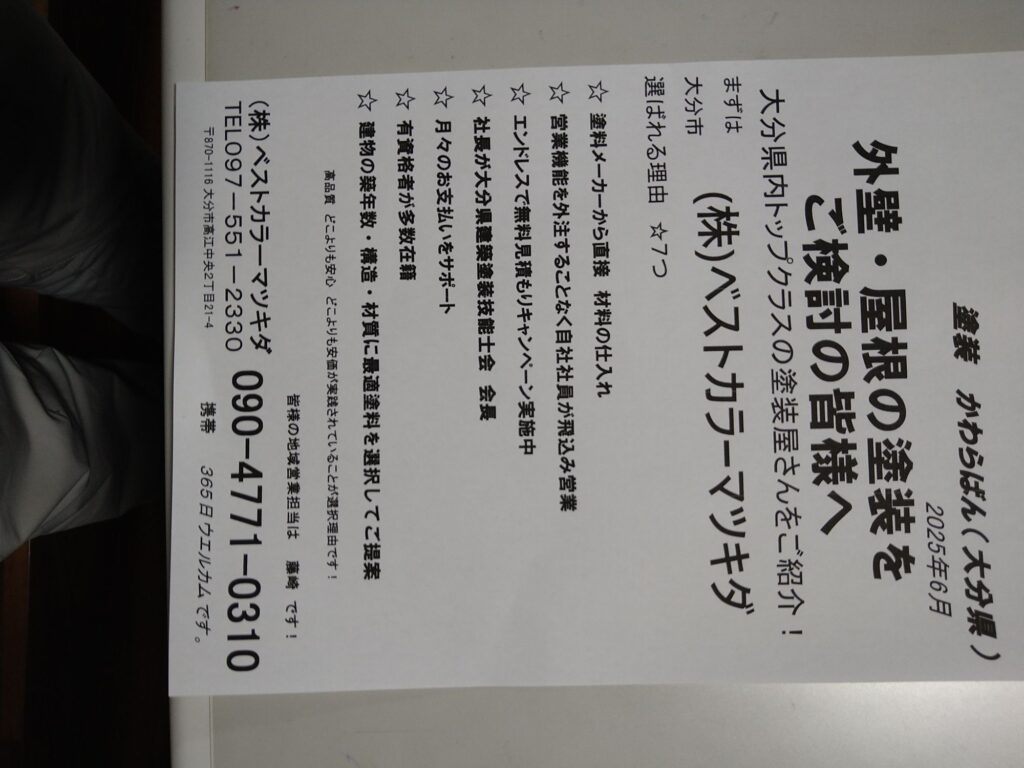 塗装　かわらばん（大分県）
2025年6月
外壁・屋根の塗装を
ご検討の皆様へ
大分県内トップクラスの塗装屋さんをご紹介！
まずは
大分市　（株）ベストカラーマツキダ
選ばれる理由　☆7つ
☆ 塗料メーカーから直接　材料の仕入れ
☆ 営業機能を外注することなく自社社員が飛込み営業
☆ エンドレスで無料見積もりキャンペーン実施中
☆ 社長が大分県建築塗装技能士会　会長
☆ 月々のお支払いをサポート
☆ 有資格者が多数在籍
☆ 建物の築年数・構造・材質に最適塗料を選択してご提案
高品質　どこよりも安心　どこよりも安価が実践されていることが選択理由です！
皆様の地域営業担当は　藤崎　です！
（株）ベストカラーマツキダ
TEL097-551-2330
090-4771-0310
〒870-1116 大分市高江中央2丁目21-4
携帯　365日ウエルカムです。